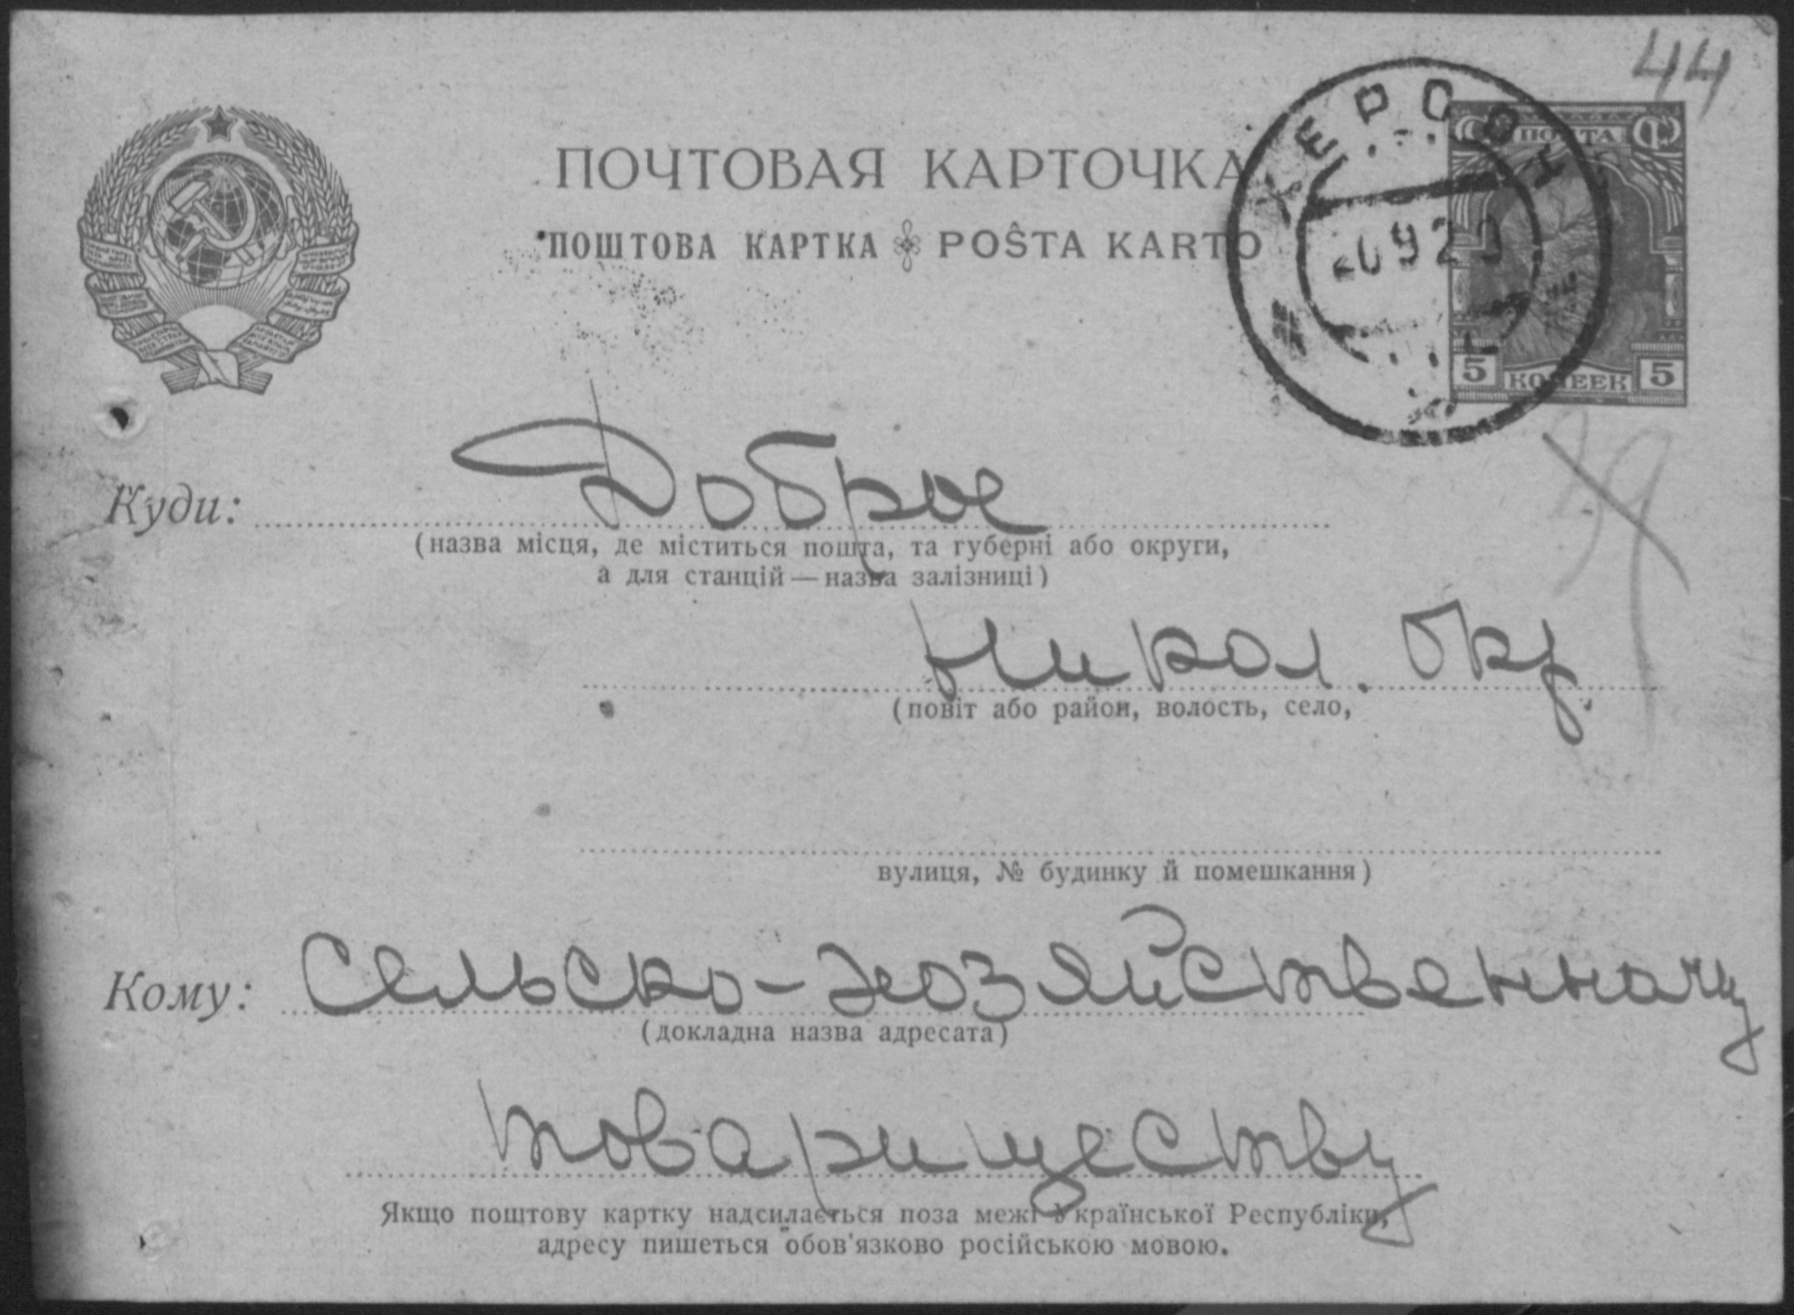 44
ПОЧТОВАЯ КАРТОЧКА
ПОШТОВА КАРТКА POŜTA KARTO
ХЕРСОН
ПОЧТА
5 КОПЕЕК 5
Куди: Доброе
(назва місця, де міститься пошта, та губерні або округи,
а для станцій — назва залізниці)
Никол. Окр.
(повіт або район, волость, село,
вулиця, № будинку й помешкання)
Кому: Сельско-хозяйственному
(докладна назва адресата)
товариществу
Якщо поштову картку надсилається поза межі Української Республіки,
адресу пишеться обов'язково російською мовою.